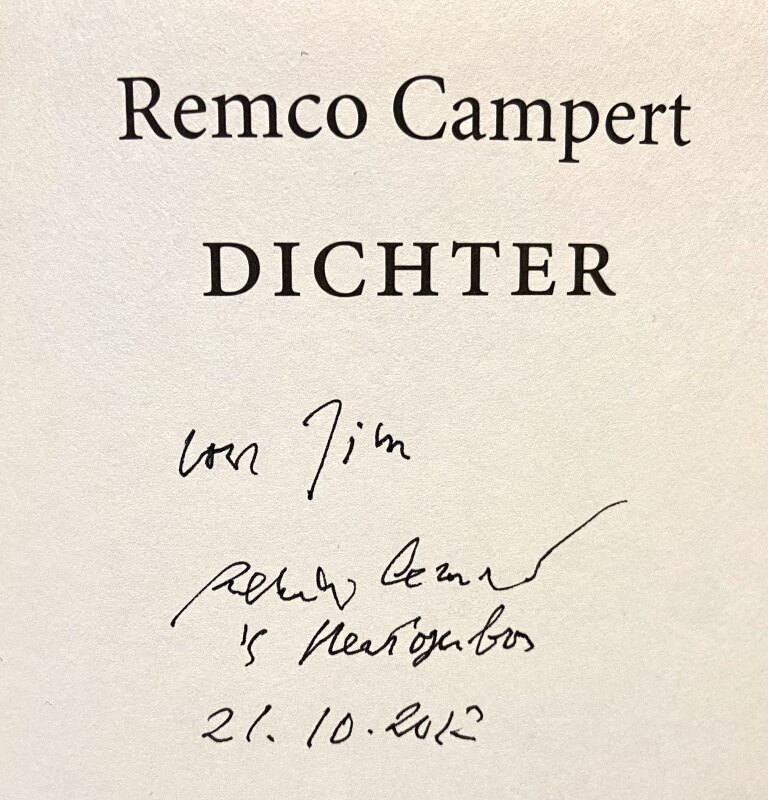 Remco Campert
DICHTER
voor Jim
Remco Campert
's Hertogenbos
21. 10. 2012